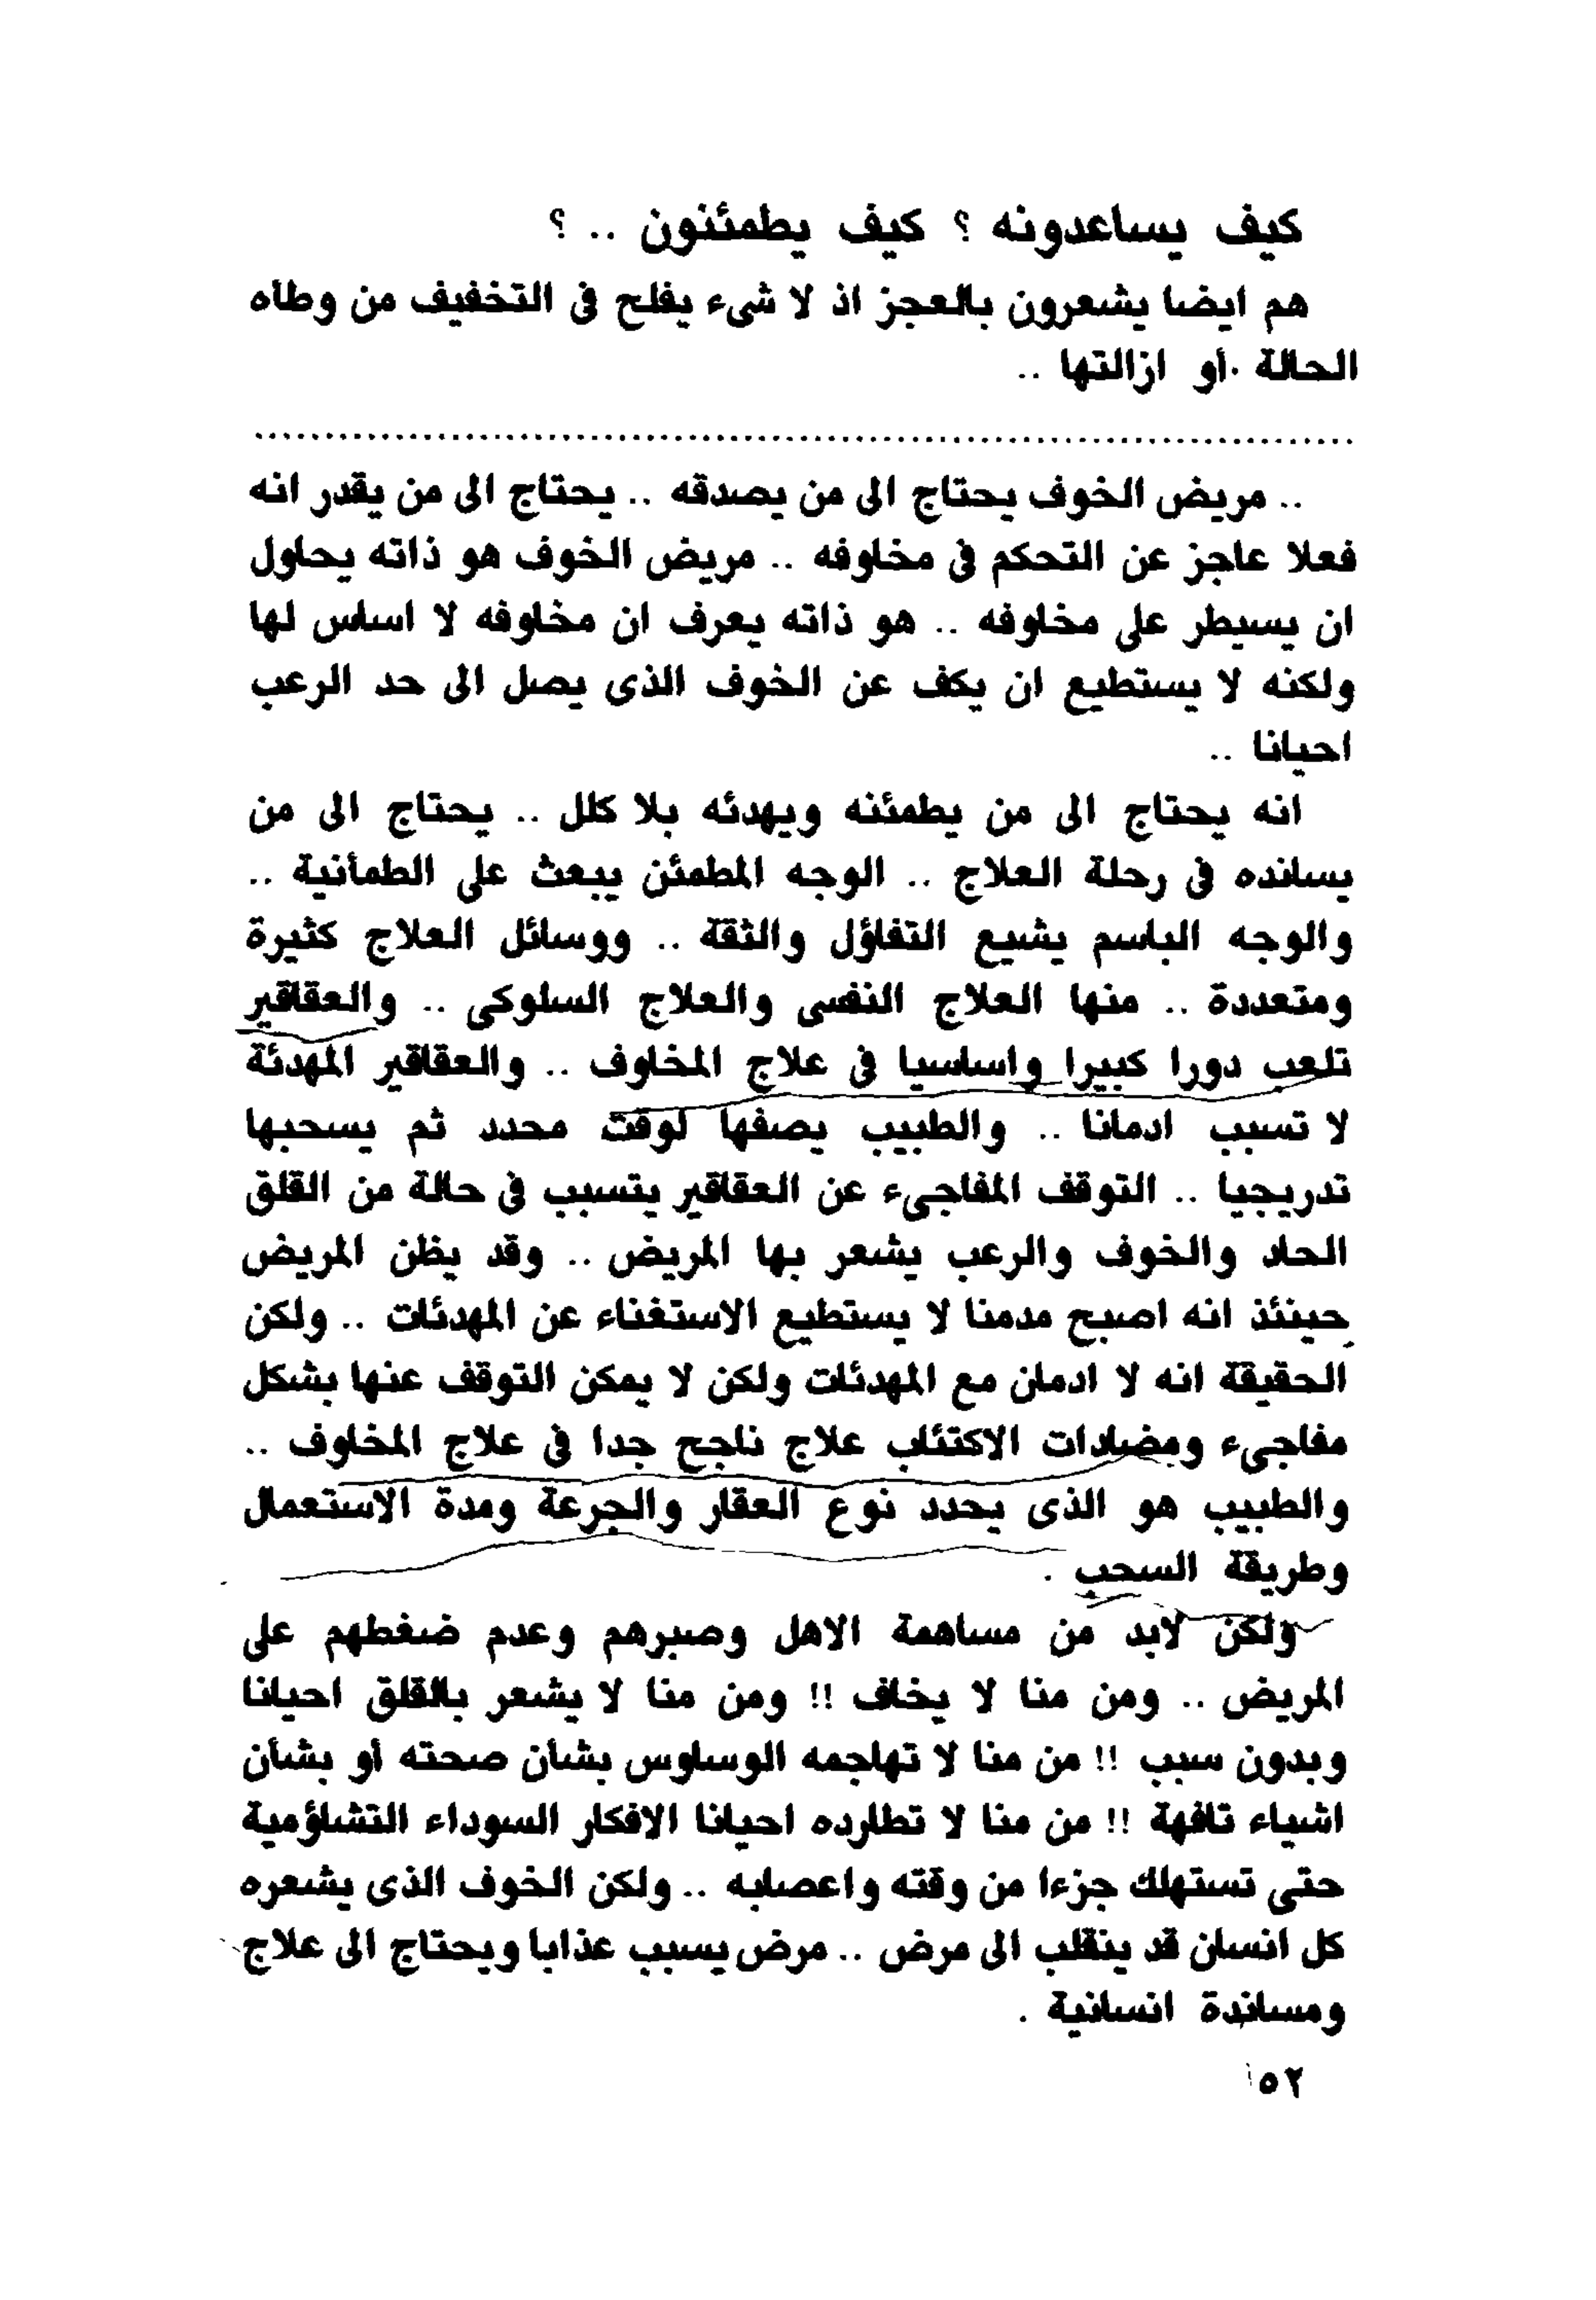 كيف يساعدونه ؟ كيف يطمئنون .. ؟
هم ايضا يشعرون بالعجز اذ لا شىء يفلح فى التخفيف من وطأه
الحالة أو ازالتها ..
................................................................................
.. مريض الخوف يحتاج الى من يصدقه .. يحتاج الى من يقدر انه
فعلا عاجز عن التحكم فى مخاوفه .. مريض الخوف هو ذاته يحاول
ان يسيطر على مخاوفه .. هو ذاته يعرف ان مخاوفه لا اساس لها
ولكنه لا يستطيع ان يكف عن الخوف الذى يصل الى حد الرعب
احيانا ..
انه يحتاج الى من يطمئنه ويهدئه بلا كلل .. يحتاج الى من
يسانده فى رحلة العلاج .. الوجه المطمئن يبعث على الطمأنية ..
والوجه الباسم يشيع التفاؤل والثقة .. ووسائل العلاج كثيرة
ومتعددة .. منها العلاج النفسى والعلاج السلوكى .. والعقاقير
تلعب دورا كبيرا واساسيا فى علاج المخاوف .. والعقاقير المهدئة
لا تسبب ادمانا .. والطبيب يصفها لوقت محدد ثم يسحبها
تدريجيا .. التوقف المفاجىء عن العقاقير يتسبب فى حالة من القلق
الحاد والخوف والرعب يشعر بها المريض .. وقد يظن المريض
حينئذ انه اصبح مدمنا لا يستطيع الاستغناء عن المهدئات .. ولكن
الحقيقة انه لا ادمان مع المهدئات ولكن لا يمكن التوقف عنها بشكل
مفاجىء ومضادات الاكتئاب علاج ناجح جدا فى علاج المخاوف ..
والطبيب هو الذى يحدد نوع العقار والجرعة ومدة الاستعمال
وطريقة السحب .
ولكن لابد من مساهمة الاهل وصبرهم وعدم ضغطهم على
المريض .. ومن منا لا يخاف !! ومن منا لا يشعر بالقلق احيانا
وبدون سبب !! من منا لا تهاجمه الوساوس بشأن صحته أو بشأن
اشياء تافهة !! من منا لا تطارده احيانا الافكار السوداء التشاؤمية
حتى تستهلك جزءا من وقته واعصابه .. ولكن الخوف الذى يشعره
كل انسان قد ينقلب الى مرض .. مرض يسبب عذابا ويحتاج الى علاج
ومساندة انسانية .
٥٢